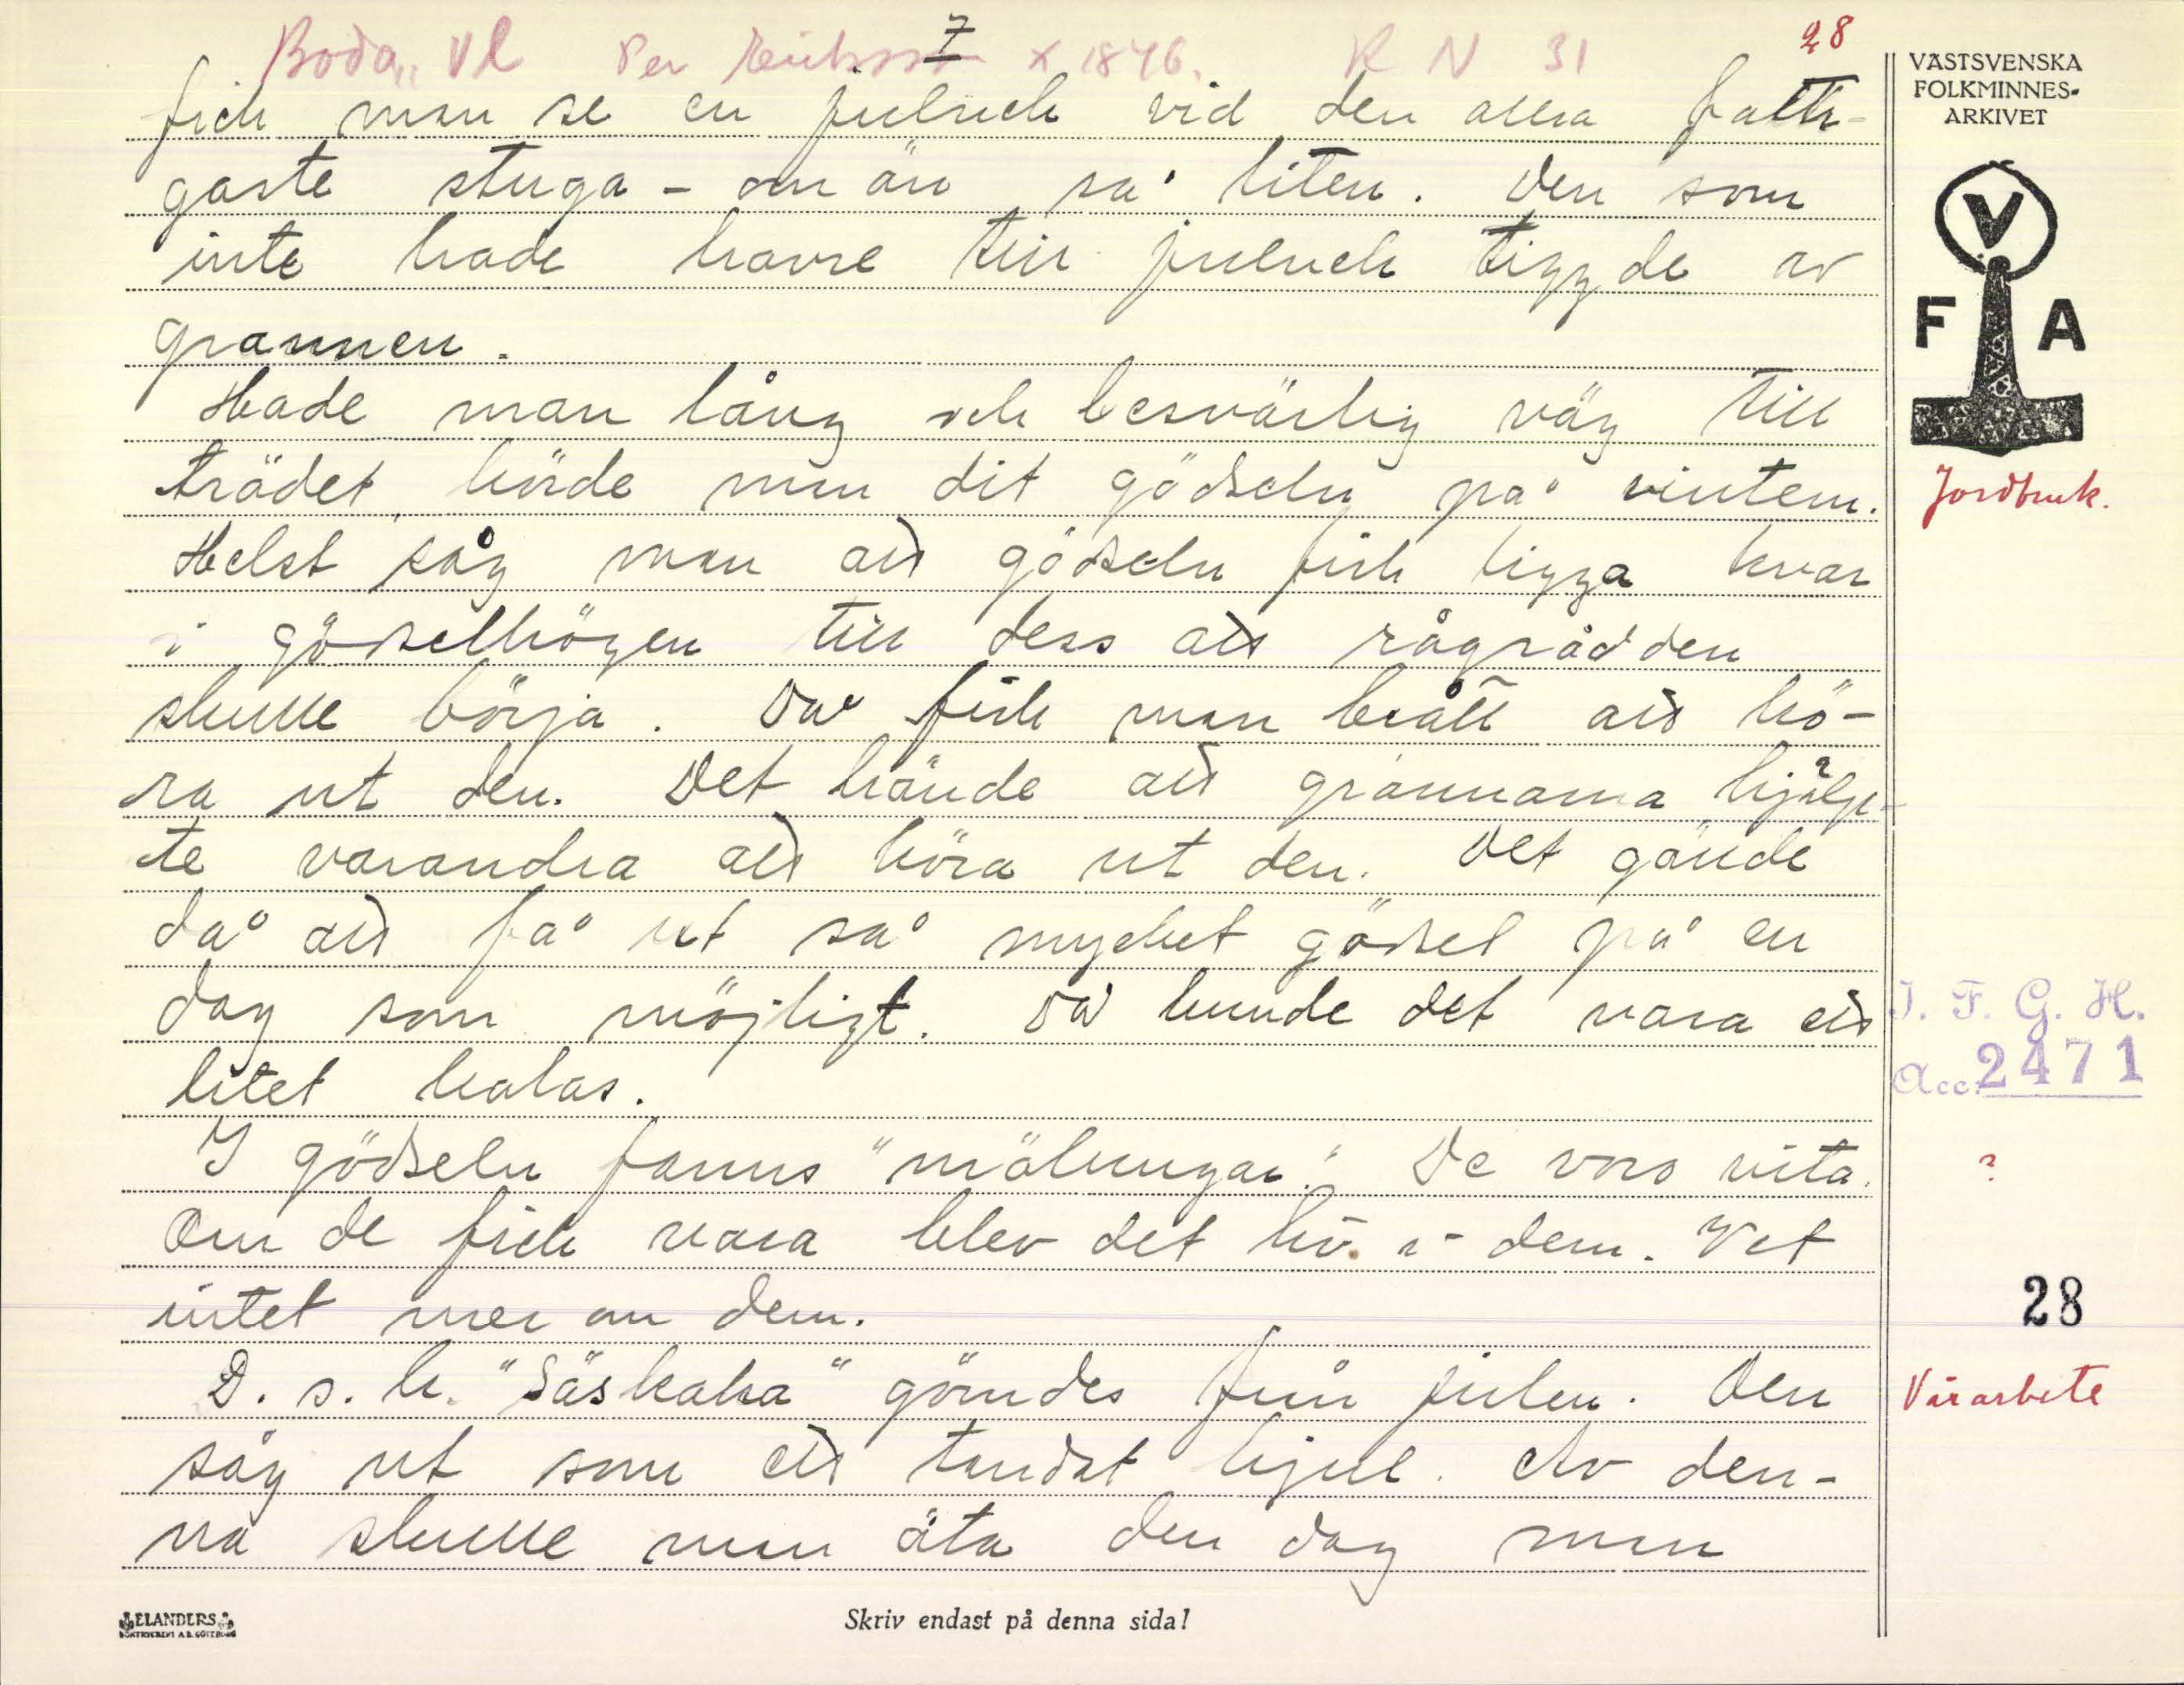 7
28
Boda, Vl Per Eriksson f. 1846. R N 31
fick man se en julnek vid den allra fatti-
gaste stuga - om än så liten. Den som
inte hade havre till julnek tiggde av
grannen.
Hade man lång och besvärlig väg till
trädet, körde man dit gödseln på vintern.
Helst såg man att gödseln fick ligga kvar
i gödselhögen till dess att rågsådden
skulle börja. Då fick man brått att kö-
ra ut den. Det hände att grannarna hjälp-
te varandra att köra ut den. Det gällde
då att få ut så mycket gödsel på en
dag som möjligt. Då kunde det vara ett
litet kalas.
I gödseln fanns "mölungar". De voro vita.
Om de fick vara blev det liv i dem. Vet
intet mer om dem.
D. s. k. "Såskaka" gömdes från julen. Den
såg ut som ett tandat hjul. Av den-
na skulle man äta den dag man
VÄSTSVENSKA
FOLKMINNES-
ARKIVET
V
F A
Jordbruk.
I. F. G. H.
Acc. 2471
?
28
Vårarbete
ELANDERS
BOKTRYCKERI A.B. GÖTEBORG
Skriv endast på denna sida!